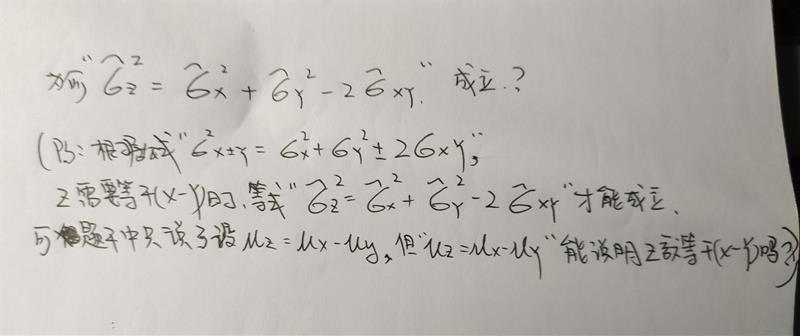 为何“σ̂z² = σ̂x² + σ̂Y² - 2σ̂xY.”成立.?
(PS: 根据公式“σ²x±Y = σx² + σY² ± 2σxY”,
Z需要等于(X-Y)时、等式“σ̂z² = σ̂x² + σ̂Y² - 2σ̂XY”才能成立.
可题干中只说了设μz = μx - μy, 但“μz = μx - μY”能说明Z就等于(X-Y)吗?)